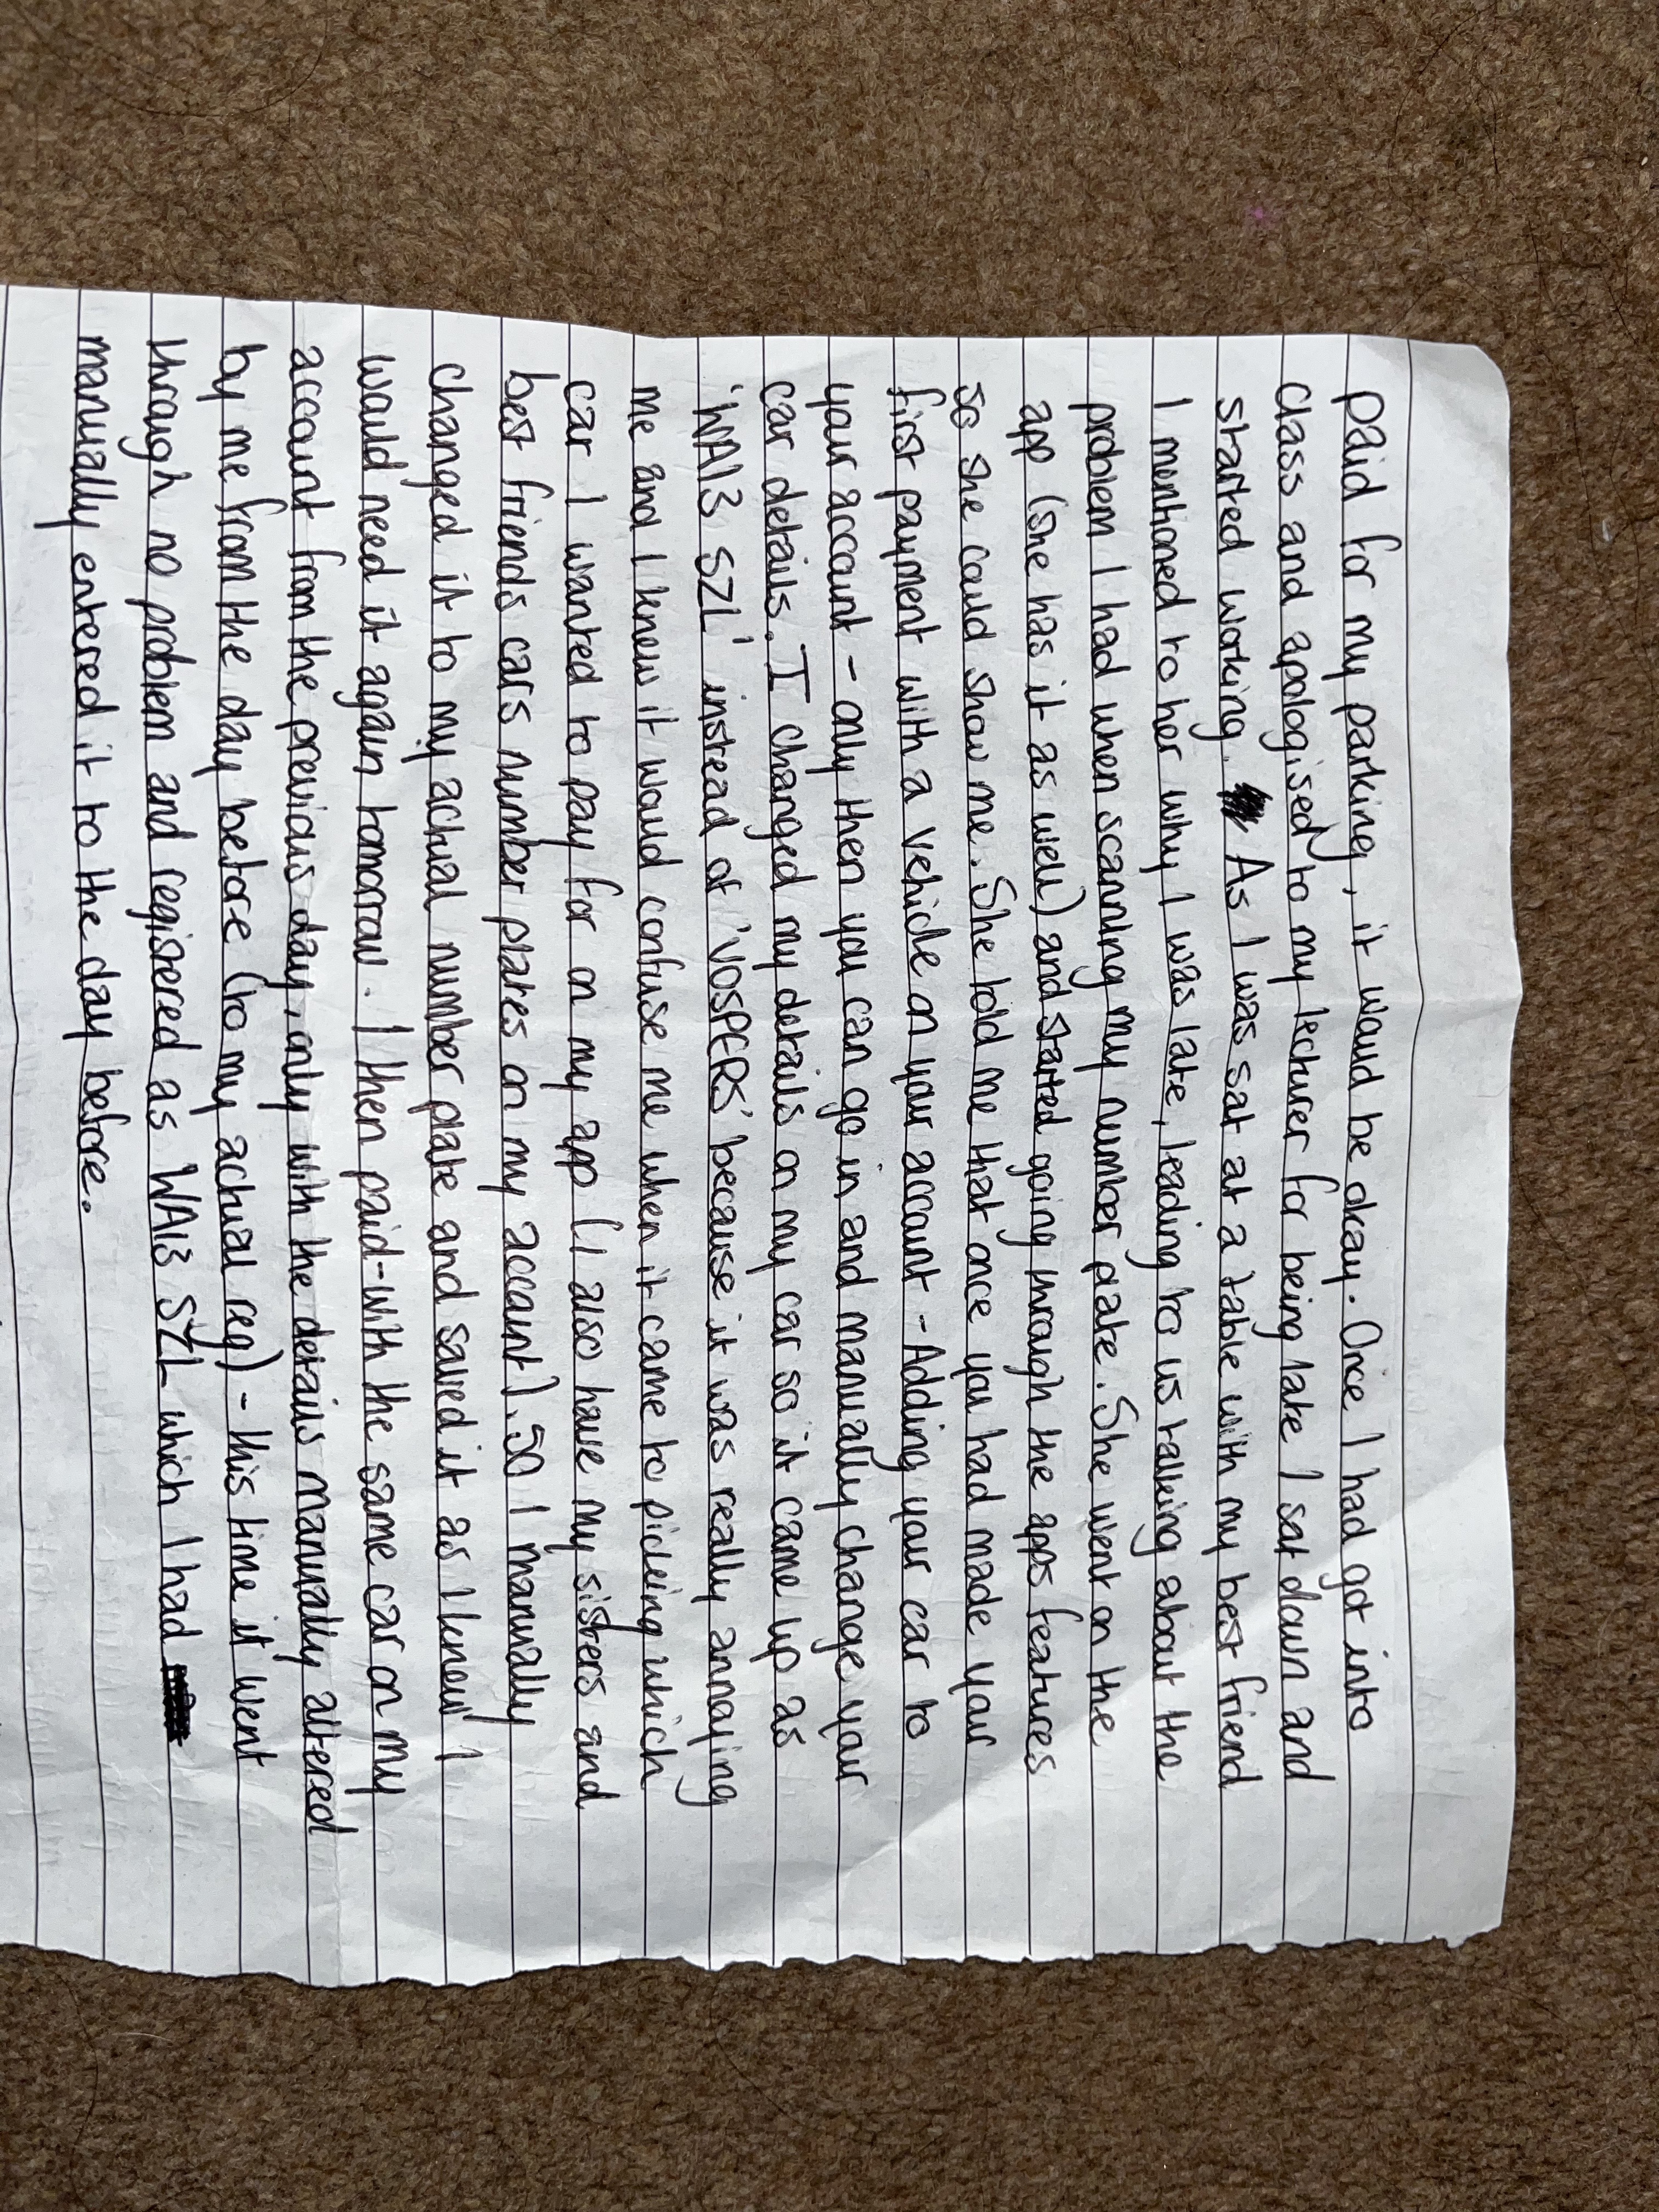 paid for my parking, it would be okay. Once I had got into
class and apologised to my lecturer for being late I sat down and
started working. As I was sat at a table with my best friend
I mentioned to her why I was late, leading to us talking about the
problem I had when scanning my number plate. She went on the
app (she has it as well) and started going through the apps features
so she could show me. She told me that once you had made your
first payment with a vehicle on your account - Adding your car to
your account - only then you can go in and manually change your
car details. I changed my details on my car so it came up as
'WA13 SZL' instead of 'VOSPERS' because it was really annoying
me and I knew it would confuse me when it came to picking which
car I wanted to pay for on my app (I also have my sisters and
best friends cars number plates on my account). SO I manually
changed it to my actual number plate and saved it as I knew I
would need it again tomorrow. I then paid - with the same car on my
account from the previous day, only with the details manually altered
by me from the day before (to my actual reg) - this time it went
through no problem and registered as WA13 SZL which I had
manually entered it to the day before.